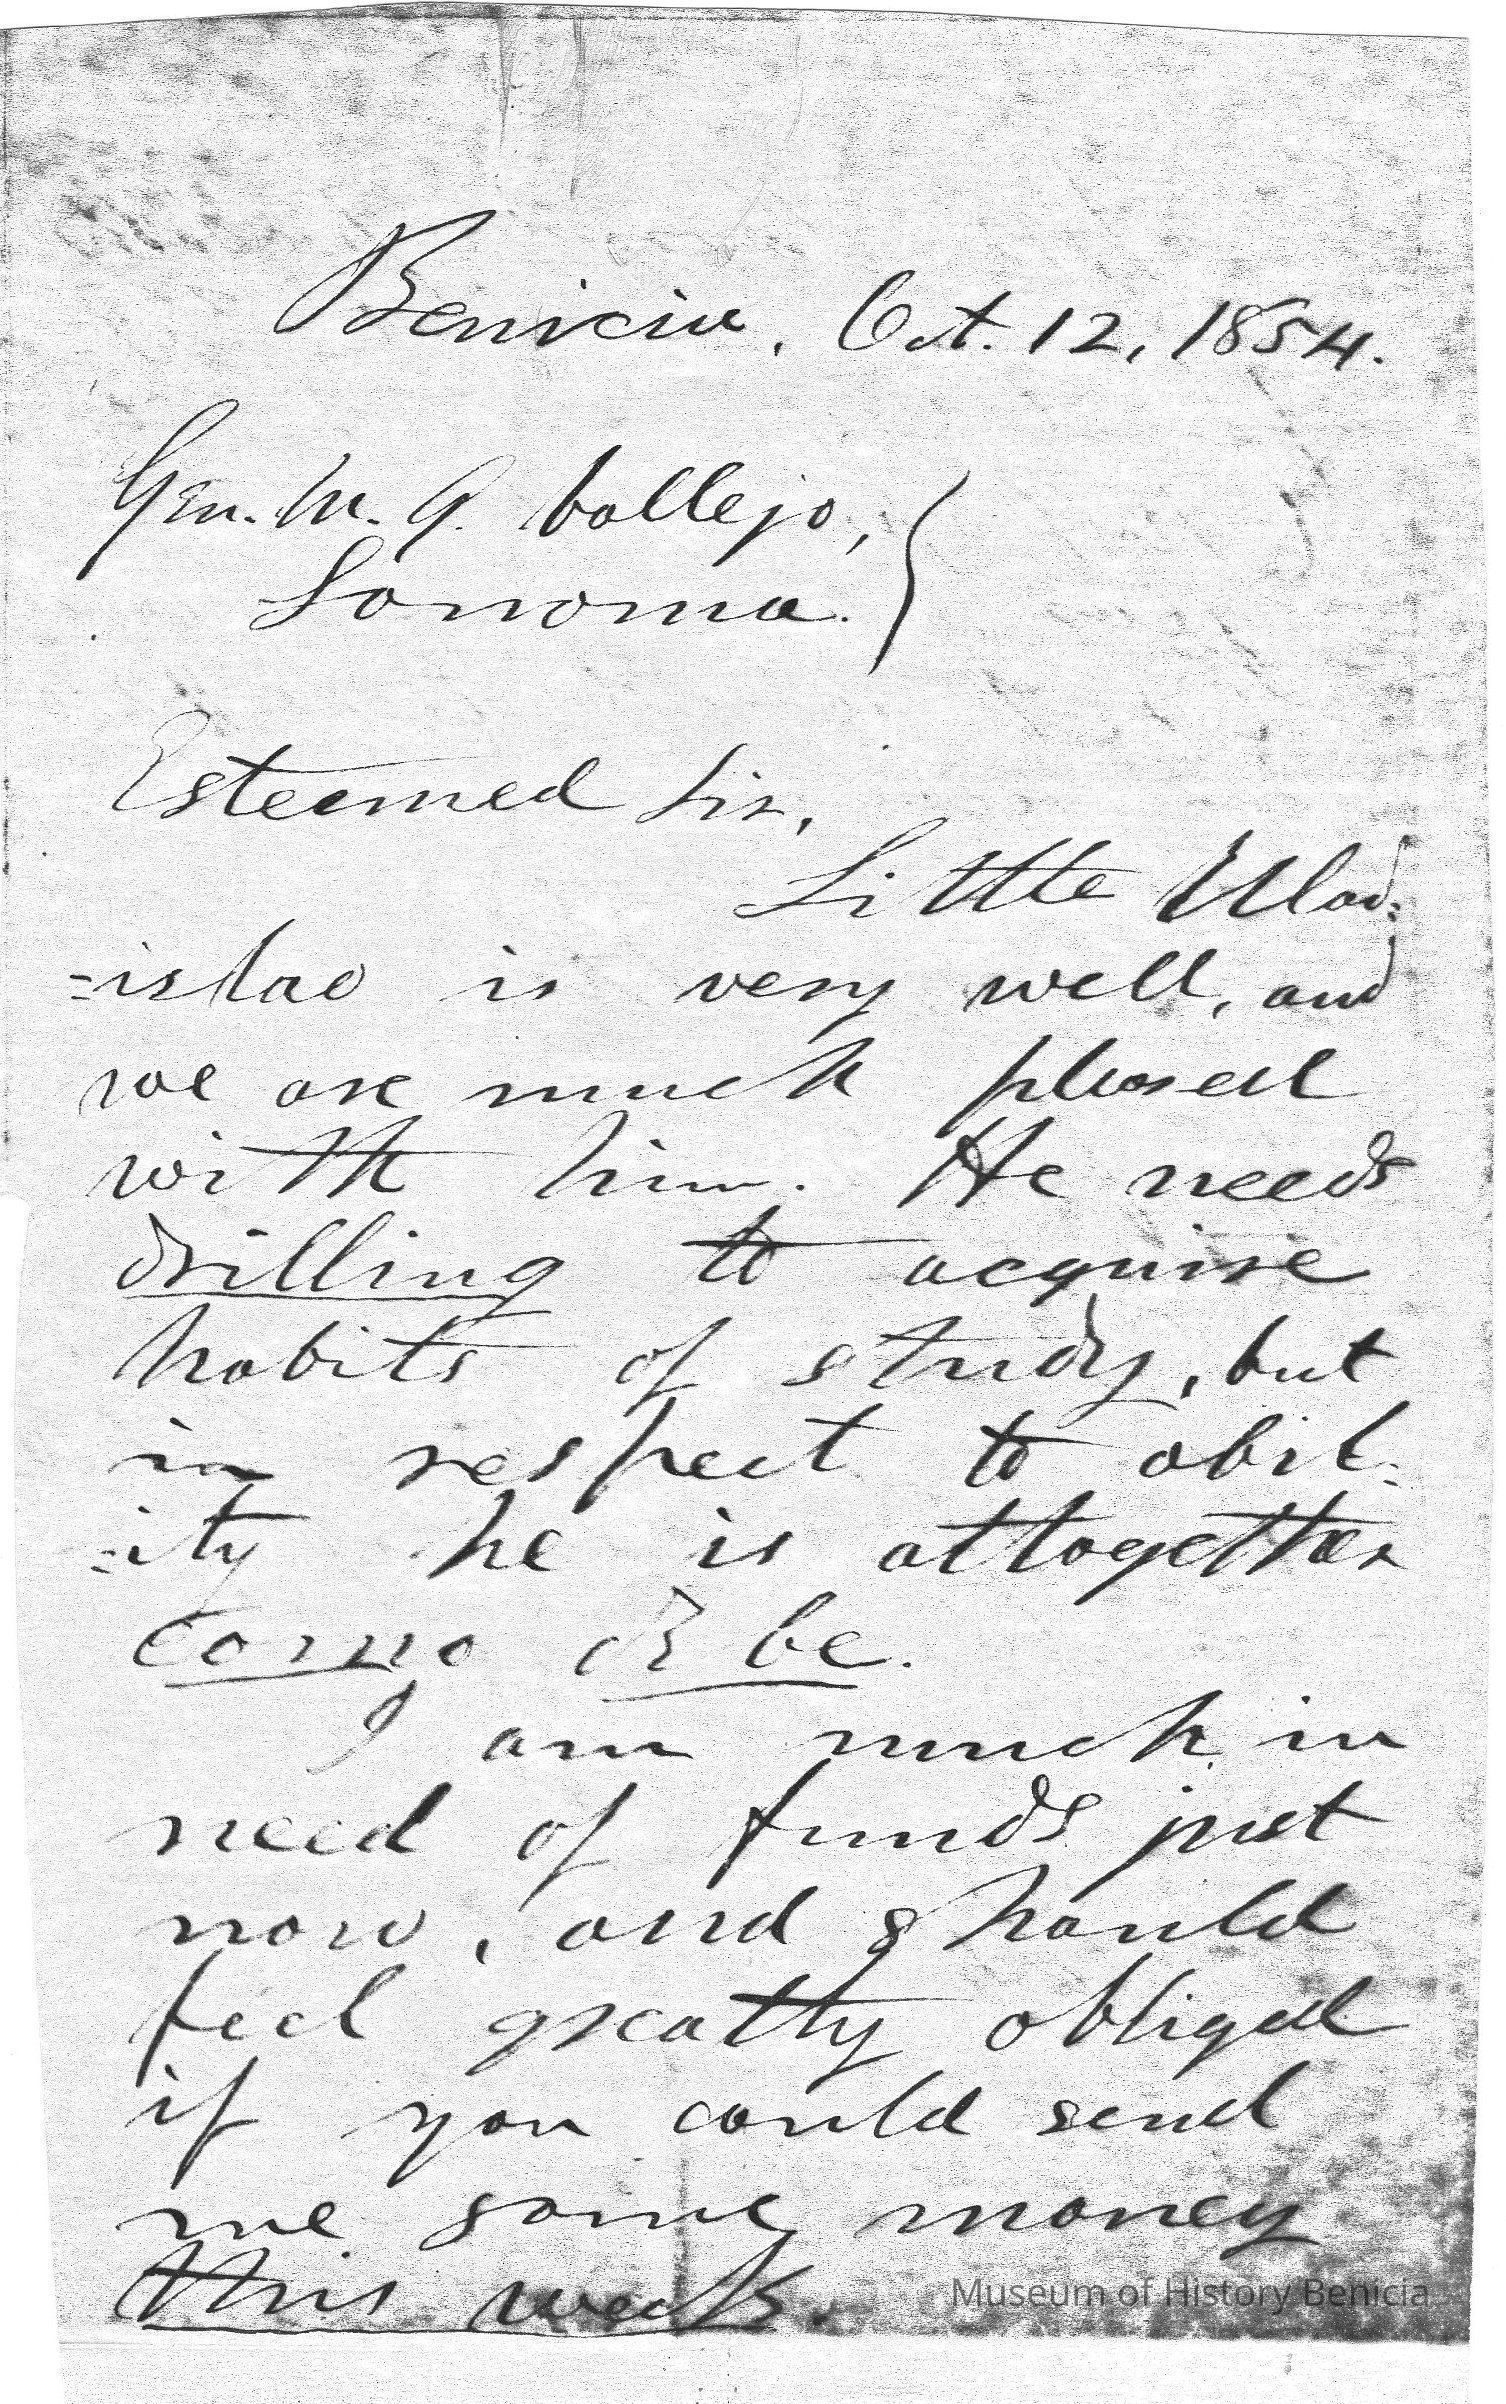 Benicia, Oct. 12, 1854.
Gen. M. G. Vallejo,
Sonoma.
Esteemed Sir,
Little Ulad=
=islao is very well, and
we are much pleased
with him. He needs
drilling to acquire
habits of study, but
in respect to abil=
=ity he is altogether
como debe.
I am much in
need of funds just
now, and should
feel greatly obliged
if you could send
me some money
this week.
Museum of History Benicia